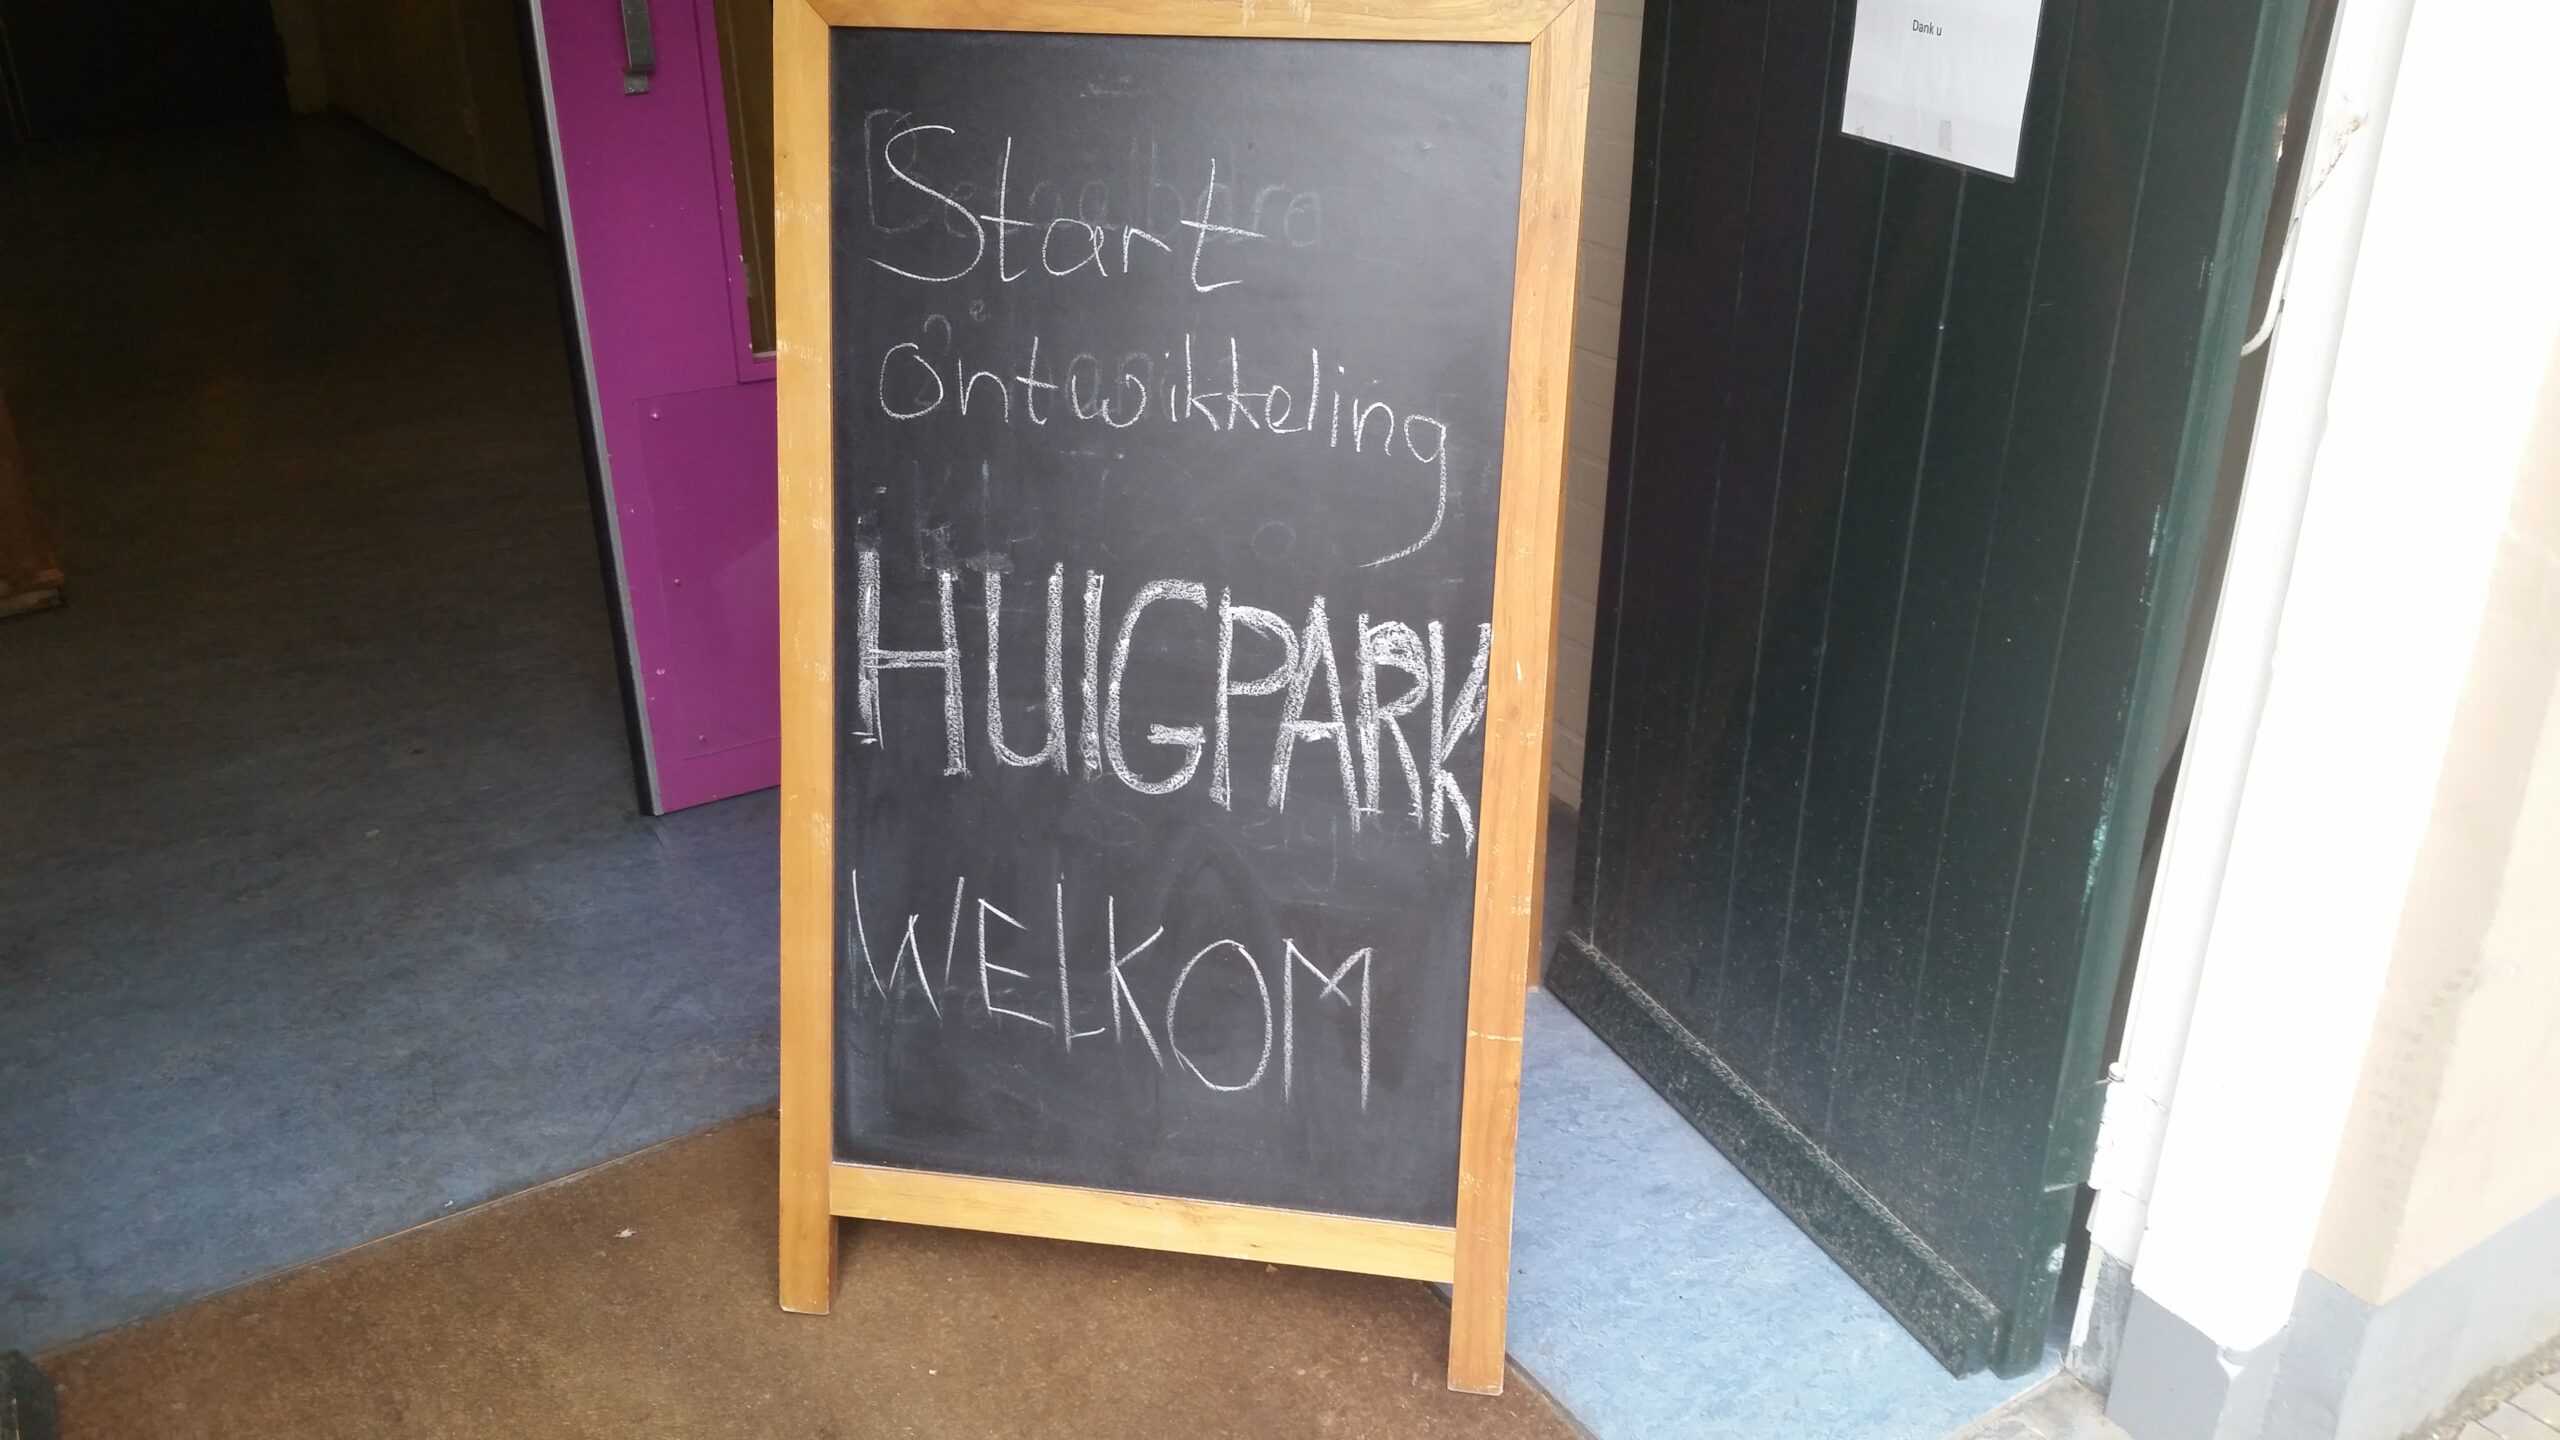 Dank u
Start
ontwikkeling
HUIGPARK
WELKOM